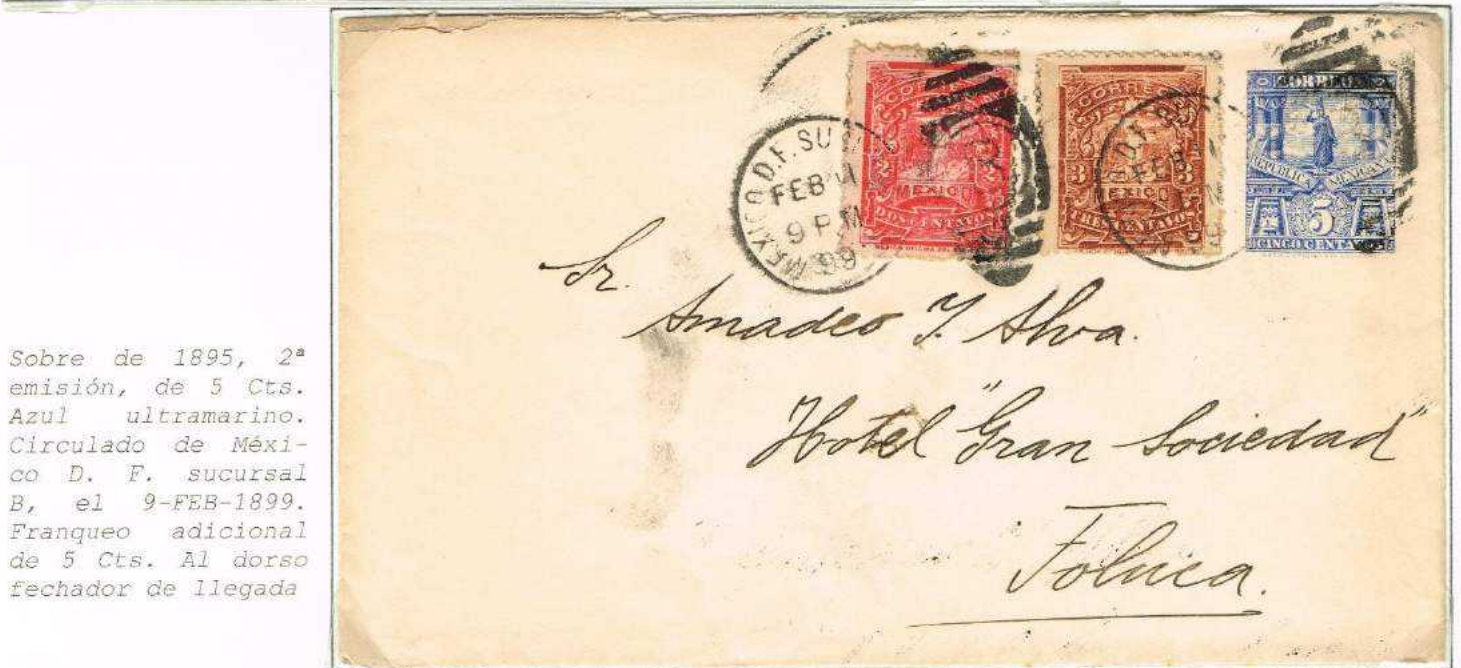 Sobre de 1895, 2ª
emisión, de 5 Cts.
Azul ultramarino.
Circulado de Méxi-
co D. F. sucursal
B, el 9-FEB-1899.
Franqueo adicional
de 5 Cts. Al dorso
fechador de llegada
MEXICO D.F. SU
FEB
9 PM
99
CORREOS
2 2
MEXICO
DOS CENTAVOS
CORREOS
3 3
MEXICO
TRES CENTAVOS
D.F.
FEB
CORREOS
REPUBLICA MEXICANA
5
CINCO CENTAVOS
Sr.
Amadeo Y. Alva.
Hotel "Gran Sociedad"
Toluca.